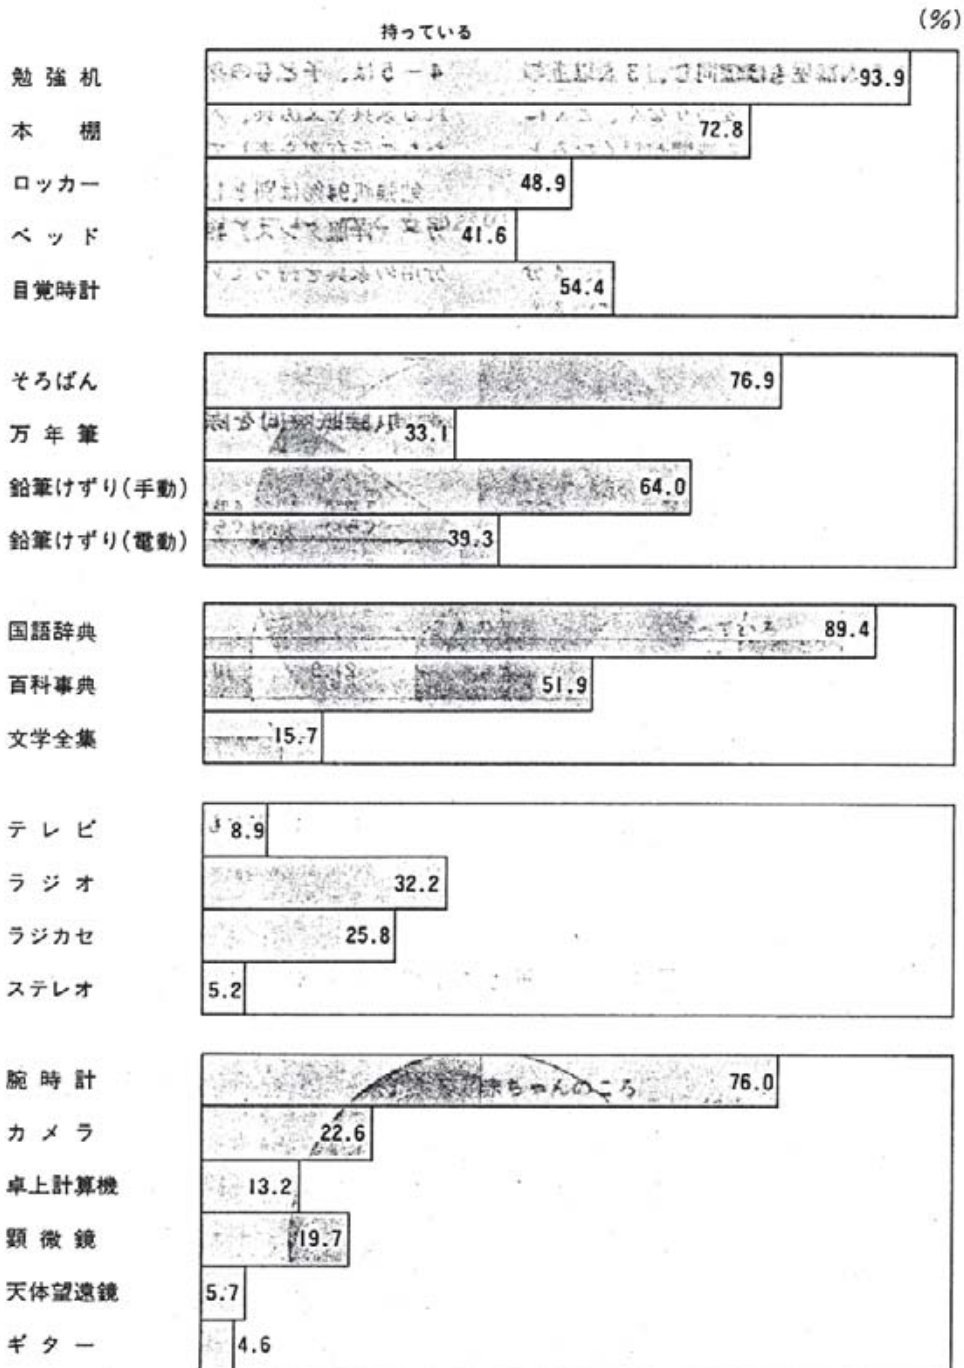 (%)
持っている
勉強机 93.9
本棚 72.8
ロッカー 48.9
ベッド 41.6
目覚時計 54.4
そろばん 76.9
万年筆 33.1
鉛筆けずり(手動) 64.0
鉛筆けずり(電動) 39.3
国語辞典 89.4
百科事典 51.9
文学全集 15.7
テレビ 8.9
ラジオ 32.2
ラジカセ 25.8
ステレオ 5.2
腕時計 76.0
カメラ 22.6
卓上計算機 13.2
顕微鏡 19.7
天体望遠鏡 5.7
ギター 4.6